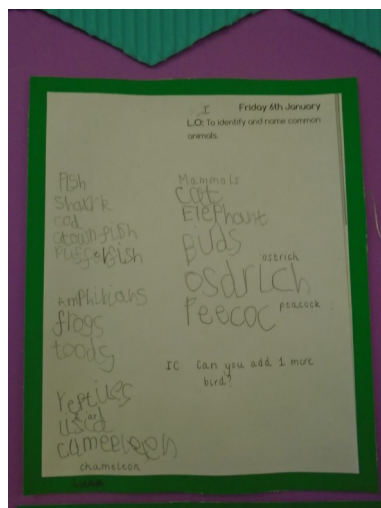 I
Friday 6th January
L.O: To identify and name common
animals.
Fish
Shark
cod
clownfish
Pufferfish
Amphibians
frogs
toads
reptiles
cameeleen
chameleon
Mammals
cat
Elephant
buds
ostrich
osdrich
Peecoc
peacock
IC Can you add 1 more
bird?